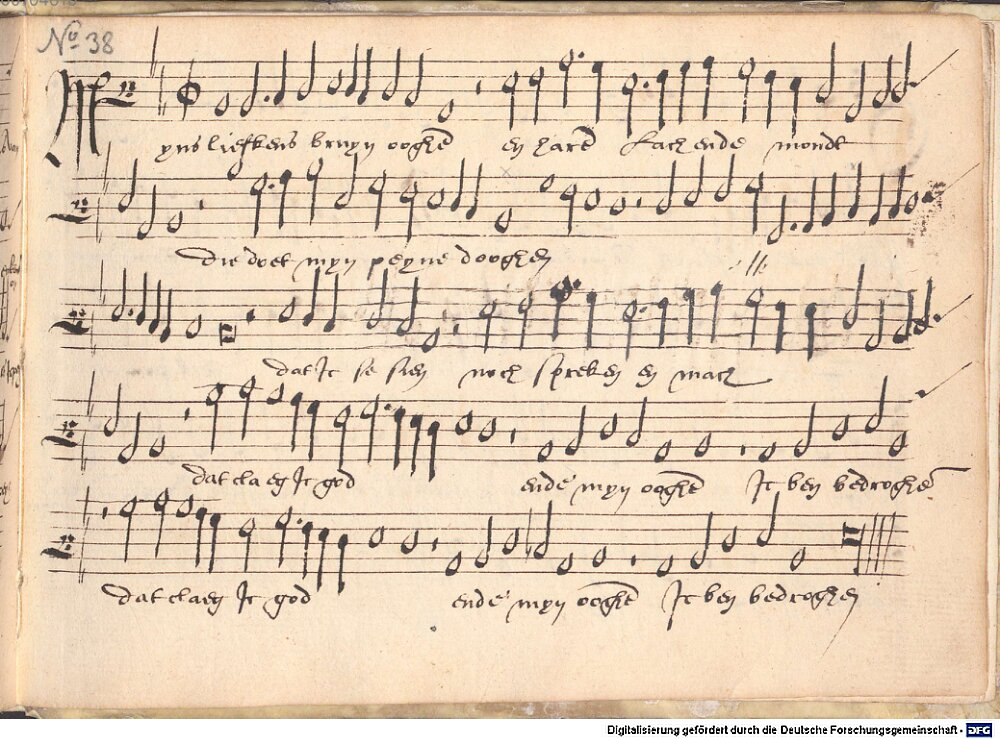 No 38
Myns liefkens bruyn ooghē en harē lachende mondt
die doet myn peyne dooghen //
dat Ic se sien noch spreken en mach
dat claeg Ic god ende myn ooghē Ic ben bedroghē
dat claeg Ic god ende myn ooghē Ic ben bedroghen
Digitalisierung gefördert durch die Deutsche Forschungsgemeinschaft - DFG